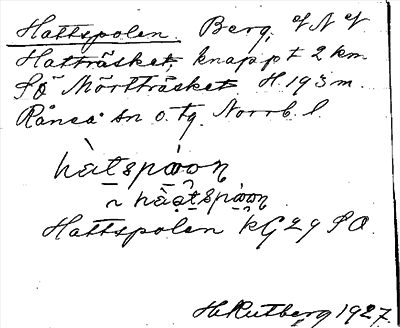 Hattspolen. Berg, x/N x/
Hatträsket, knappt 2 km.
SÖ Mörtträsket. H. 193 m.
Råneå sn o. tg. Norrb. l.
hàt̲spo̲o̲n̥
~ hàə̲t̲spo̲o̲n̥
Hattspolen kG 29 SO.
H. Rutberg 1927.